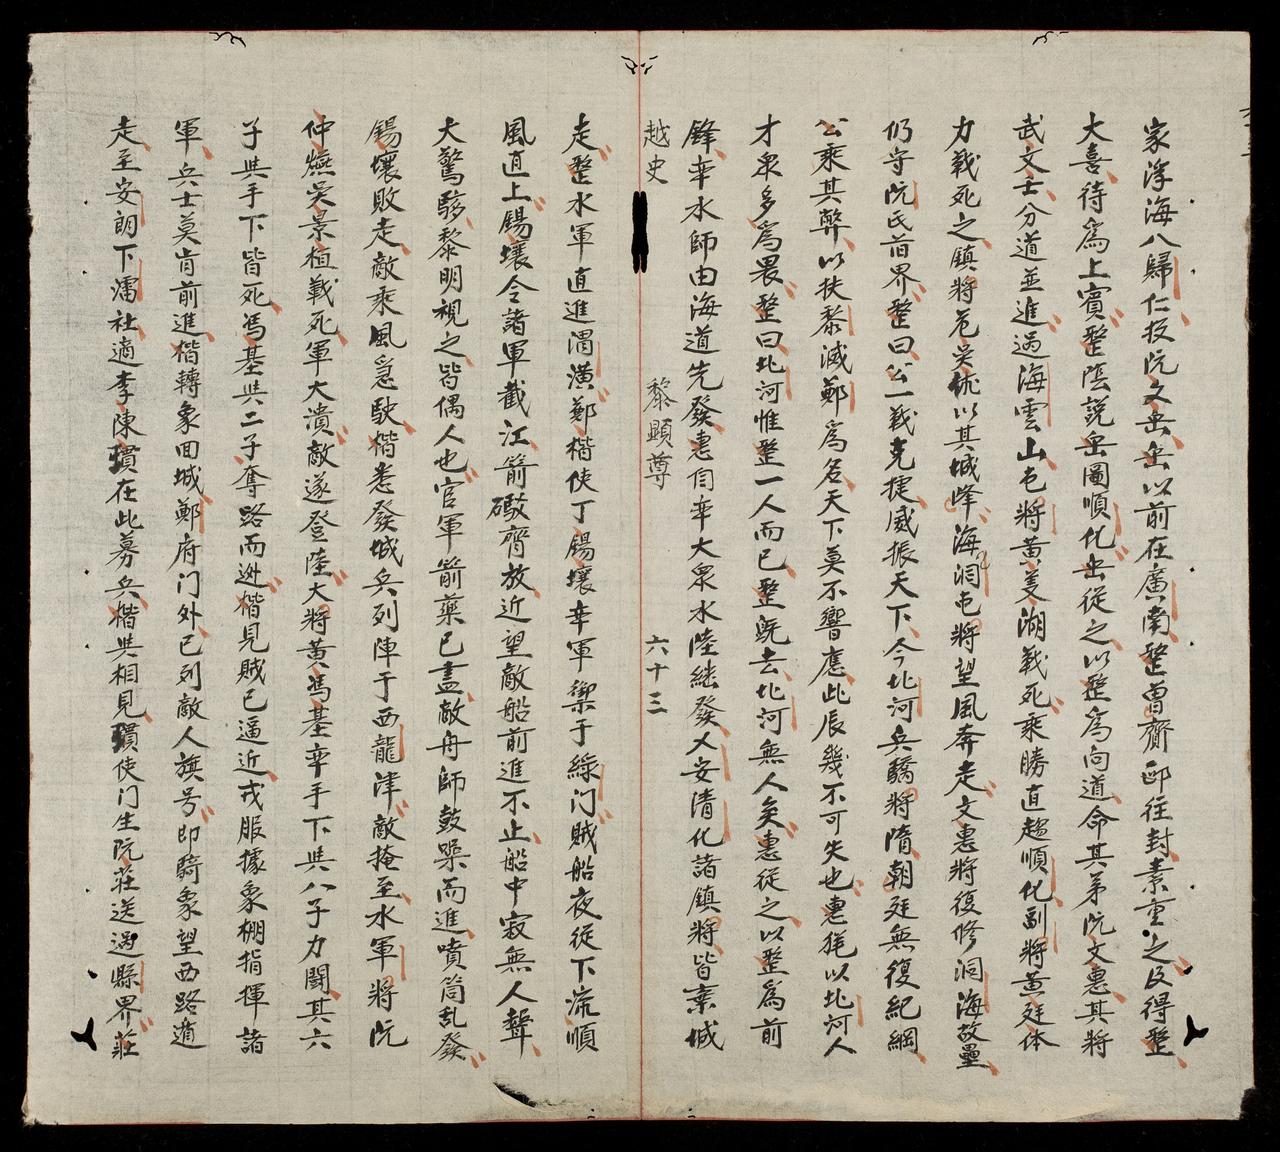 家浮海入歸仁投阮文岳岳以前在廣南整曾齎郵往封素重之及得整
大喜待爲上賓整陰説岳圖順化岳從之以整爲向道命其弟阮文惠其將
武文士分道並進過海雲山屯將黃美湖戰死乘勝直趨順化副將黃廷体
力戰死之鎮將范吳俅以其城降海洞屯將望風奔走文惠將復修洞海故壘
仍守阮氏旧界整曰公一戰克捷威振天下今北河兵驕將惰朝廷無復紀綱
公乘其弊以扶黎滅鄭爲名天下莫不響應此辰幾不可失也惠狵以北河人
才衆多爲畏整曰北河惟整一人而已整旣去北河無人矣惠從之以整爲前
鋒率水師由海道先發惠自率大衆水陸継發乂安清化諸鎮將皆棄城
越史 黎顯尊 六十三
走整水軍直進渭潢鄭楷使丁錫壤率軍禦于綠门賊船夜從下流順
風直上錫壤令諸軍截江箭礮齊放近望敵船前進不止船中寂無人聲
大驚駭黎明視之皆偶人也官軍箭藥已盡敵舟師鼓噪而進噴筒乱發
錫壤敗走敵乘風急駛楷悉發城兵列陣于西龍津敵掩至水軍將阮
仲㷼吳景植戰死軍大潰敵遂登陸大將黃馮基率手下共八子力鬪其六
子與手下皆死馮基共二子奪路而迯楷見賊已逼近戎服據象棚指揮諸
軍兵士莫肯前進楷轉象回城鄭府门外已列敵人旗号即騎象望西路遁
走至安朗下濡社適李陳瓆在此募兵楷共相見瓆使门生阮莊送過縣界莊